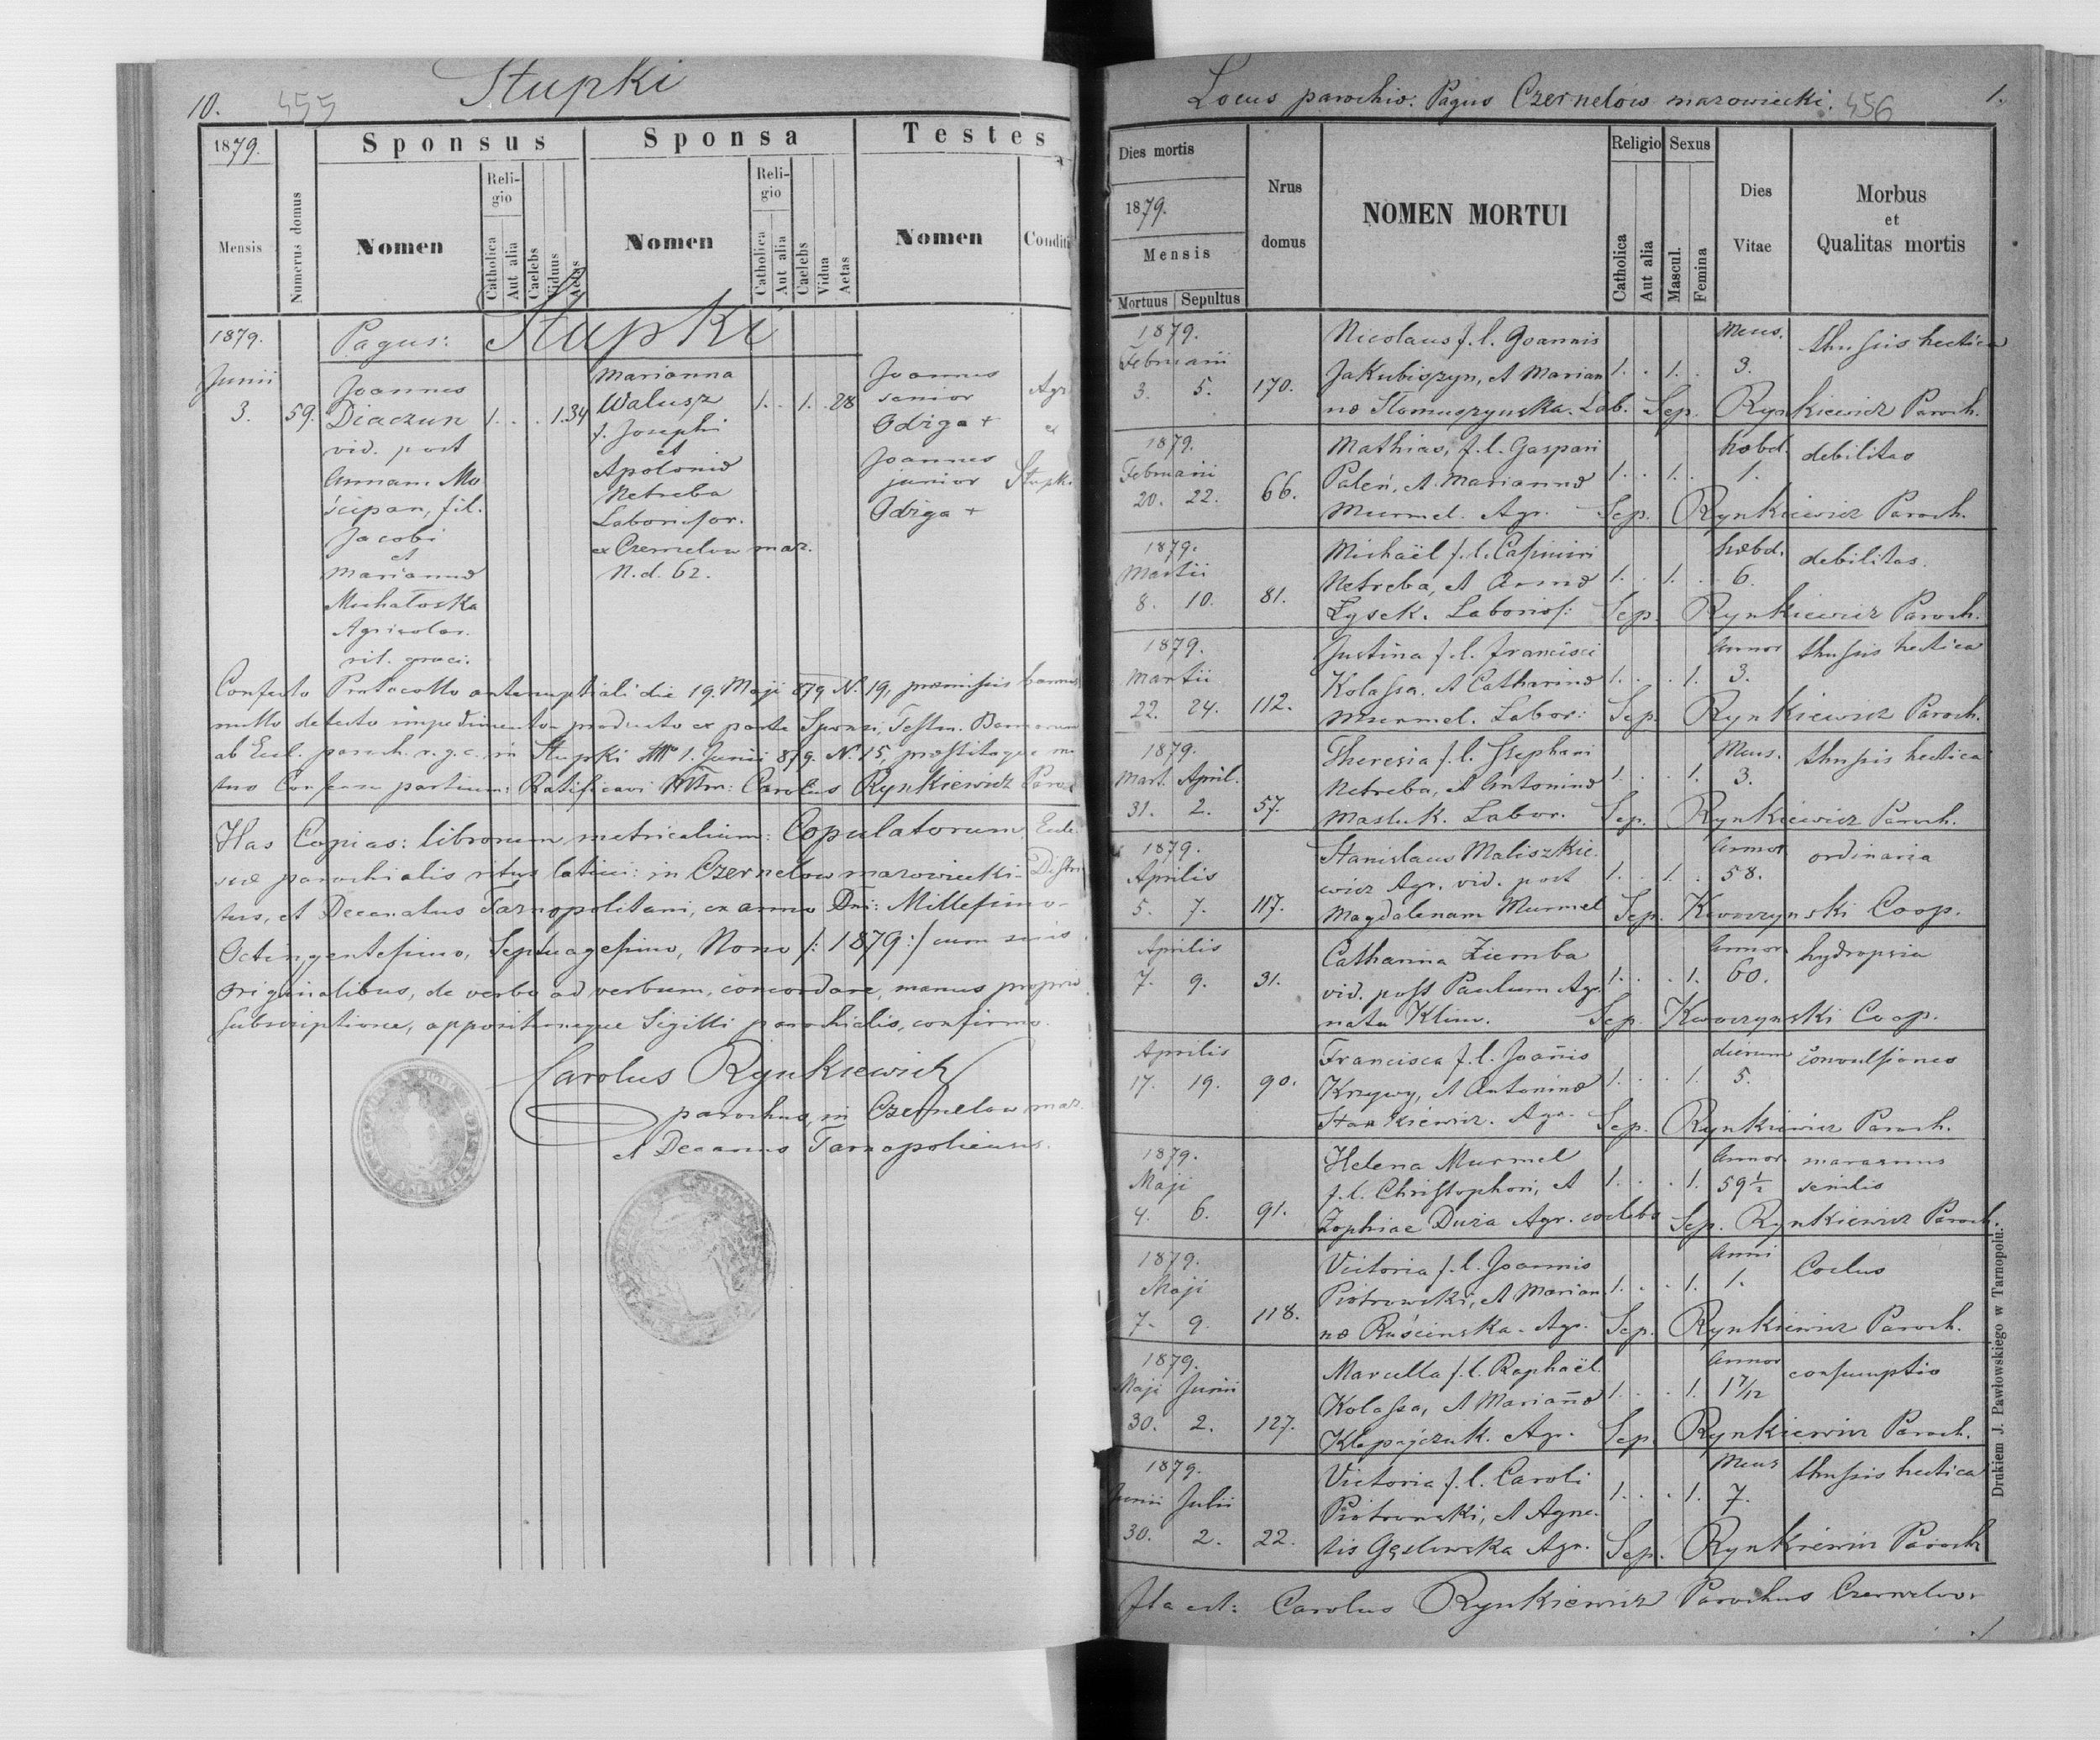 10. 455 Stupki
1879. Sponsus Sponsa Testes
Mensis Numerus domus Nomen Religio Catholica Aut alia Caelebs Viduus Aetas Nomen Religio Catholica Aut alia Caelebs Vidua Aetas Nomen Conditi
1879. Pagus: Stupki
Junii
3. 59.
Joannes
Diaczun 1. . . 1. 34
vid. post
Annam Mo
ścipan, fil.
Jacobi
et
Mariannæ
Michałoska
Agricolar.
rit. graci.
Marianna
Walusz 1. . 1. . 28
f. Josephi
et
Apoloniæ
Netreba
Laboriosor.
ex Czernelow maz.
N. d. 62.
Joannes
senior
Odziga +
Joannes
junior
Odziga +
Agr.
ex
Stupki
Confecto Protocollo antenuptiali die 19. Maji 879 N. 19, præmissis bannis
nullo detecto impedimento producto ex parte Sponsi, Testm. Bannorum
ab Eccl. paroch. r. g. c. in Stupki 1. Junii 879. N. 15, præstitoque mu
tuo Consensu partium: Ratificavi Mtrm: Carolus Rynkiewicz Paroch
Has Copias: librorum metricalium: Copulatorum, Eccle
siæ parochialis ritus latini: in Czernelow mazowiecki Distri
tus, et Decanatus Tarnopolitani, ex anno Dni: Millesimo
Octingentesimo, Septuagesimo, Nono /: 1879 :/ cum suis
originalibus, de verbo ad verbum, concordare, manus propriæ
subscriptione, appositioneque Sigilli parochialis, confirmo.
Carolus Rynkiewicz
parochus, in Czernelow maz.
et Decanus Tarnopoliensis.
Locus parochiæ: Pagus Czernelów mazowiecki. 456 1.
Dies mortis 1879. Mensis Mortuus Sepultus
Nrus domus
NOMEN MORTUI
Religio Catholica Aut alia
Sexus Mascul. Femina
Dies Vitae
Morbus et Qualitas mortis
1879. Nicolaus f. l. Joannis Mens. thussis hectica
Februarii Jakubiszyn, et Marian 1. . 1. . 3.
3. 5. 170. næ Slomuszynska. Lab. Sep. Rynkiewicz Paroch.
1879. Mathias, f. l. Gaspari hæbd. debilitas
Februarii Paleń, et Mariannæ 1. . 1. . 1.
20. 22. 66. Murmel. Agr. Sep. Rynkiewicz Paroch.
1879. Michaël f. l. Casimiri hæbd. debilitas.
Martii Netreba, et Annæ 1. . 1. . 6.
8. 10. 81. Łysek. Laborios: Sep. Rynkiewicz Paroch.
1879. Justina f. l. Francisci Annor thussis hectica
Martii Kolassa. et Catharinæ 1. . . 1. 3.
22. 24. 112. Murmel. Labor: Sep. Rynkiewicz Paroch.
1879. Theresia f. l. Stephani Mens. thussis hectica
Mart. April. Netreba, et Antoninæ 1. . . 1. 3.
31. 2. 57. Masluk. Labor. Sep. Rynkiewicz Paroch.
1879. Stanislaus Maliszkie Annor ordinaria
Aprilis wicz Agr. vid. post 1. . 1. . 58.
5. 7. 117. Magdalenam Murmel Sep. Kworzynski Coop.
Aprilis Catharina Ziemba Annor hydropsia
7. 9. 31. vid. post Paulum Agr. 1. . . 1. 60.
nata Klim. Sep. Kworzynski Coop.
Aprilis Francisca f. l. Joañis dierum convulsiones
17. 19. 90. Krzywy, et Antoninæ 1. . . 1. 5.
Stankiewicz. Agr. Sep. Rynkiewicz Paroch.
1879. Helena Murmel Annor marasmus
Maji f. l. Christophori, et 1. . . 1. 59 1/2 senilis
4. 6. 91. Zophiae Duża Agr. cælebs Sep. Rynkiewicz Paroch.
1879. Victoria f. l. Joannis Anni Coclus
Maji Piotrowski, et Marian 1. . . 1. 1.
7. 9. 118. næ Ruścinska. Agr. Sep. Rynkiewicz Paroch.
1879. Marcella f. l. Raphaël. Annor consumptio
Maji Junii Kolassa, et Mariañæ 1. . . 1. 1 7/12
30. 2. 127. Klapajczuk. Agr. Sep. Rynkiewicz Paroch.
1879. Victoria f. l. Caroli Mens thussis hectica
Junii Julii Piotrowski, et Agne 1. . . 1. 7.
30. 2. 22. tis Gęslowska Agr. Sep. Rynkiewicz Paroch
Ita est: Carolus Rynkiewicz Parochus Czernelov
Drukiem J. Pawłowskiego w Tarnopolu.